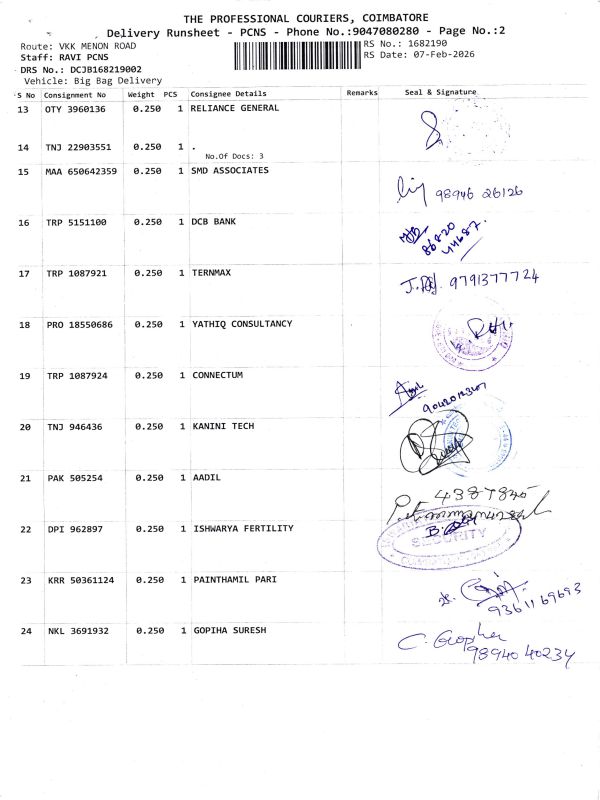 THE PROFESSIONAL COURIERS, COIMBATORE
Delivery Runsheet - PCNS - Phone No.:9047080280 - Page No.:2
Route: VKK MENON ROAD
RS No.: 1682190
Staff: RAVI PCNS
RS Date: 07-Feb-2026
DRS No.: DCJB168219002
Vehicle: Big Bag Delivery
S No Consignment No Weight PCS Consignee Details Remarks Seal & Signature
13 OTY 3960136 0.250 1 RELIANCE GENERAL
14 TNJ 22903551 0.250 1 .
No.Of Docs: 3
15 MAA 650642359 0.250 1 SMD ASSOCIATES
98946 26126
16 TRP 5151100 0.250 1 DCB BANK
86820
44687
17 TRP 1087921 0.250 1 TERNMAX
9791377724
18 PRO 18550686 0.250 1 YATHIQ CONSULTANCY
19 TRP 1087924 0.250 1 CONNECTUM
20 TNJ 946436 0.250 1 KANINI TECH
21 PAK 505254 0.250 1 AADIL
22 DPI 962897 0.250 1 ISHWARYA FERTILITY
SECURITY
23 KRR 50361124 0.250 1 PAINTHAMIL PARI
93611 69693
24 NKL 3691932 0.250 1 GOPIHA SURESH
98940 40234